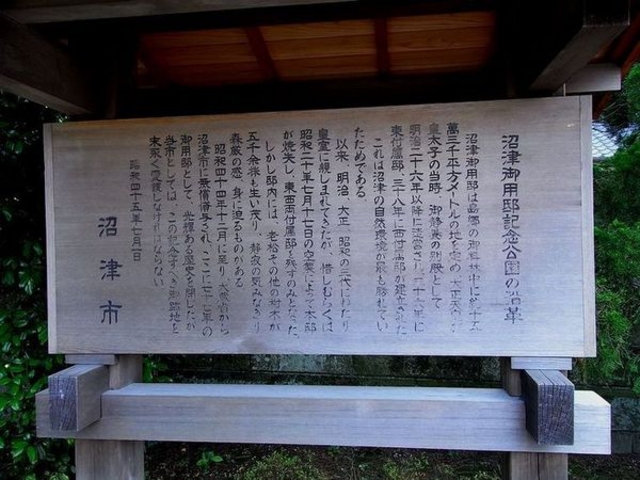 沼津御用邸記念公園の沿革
沼津御用邸は島郷の御料林中に約十五
万三千平方メートルの地を定め 大正天皇が
皇太子の当時、御静養の別殿として
明治二十六年以降に造営され三十六年に
東付属邸、三八年に西付属邸が建立された
これは沼津の自然環境が最も勝れてい
たためである、
以来、明治、大正、昭和の三代にわたり
皇室に親しまれてきたが、惜しむらくは
昭和二十年七月十七日の空襲によって本邸
が焼失し、東西両付属邸を残すのみとなった、
しかし邸内には、老松その他の樹木が
五千余株も生い茂り、静寂の気みなぎり
森厳の感、身に迫るものがある
昭和四十四年十二月に至り、大蔵省から
沼津市に無償貸与され、ここに七十七年の
御用邸として、光輝ある歴史を閉じたが
当市としては、この記念すべき御跡地を
末永く愛護しなければならない
昭和四十五年七月一日
沼津市